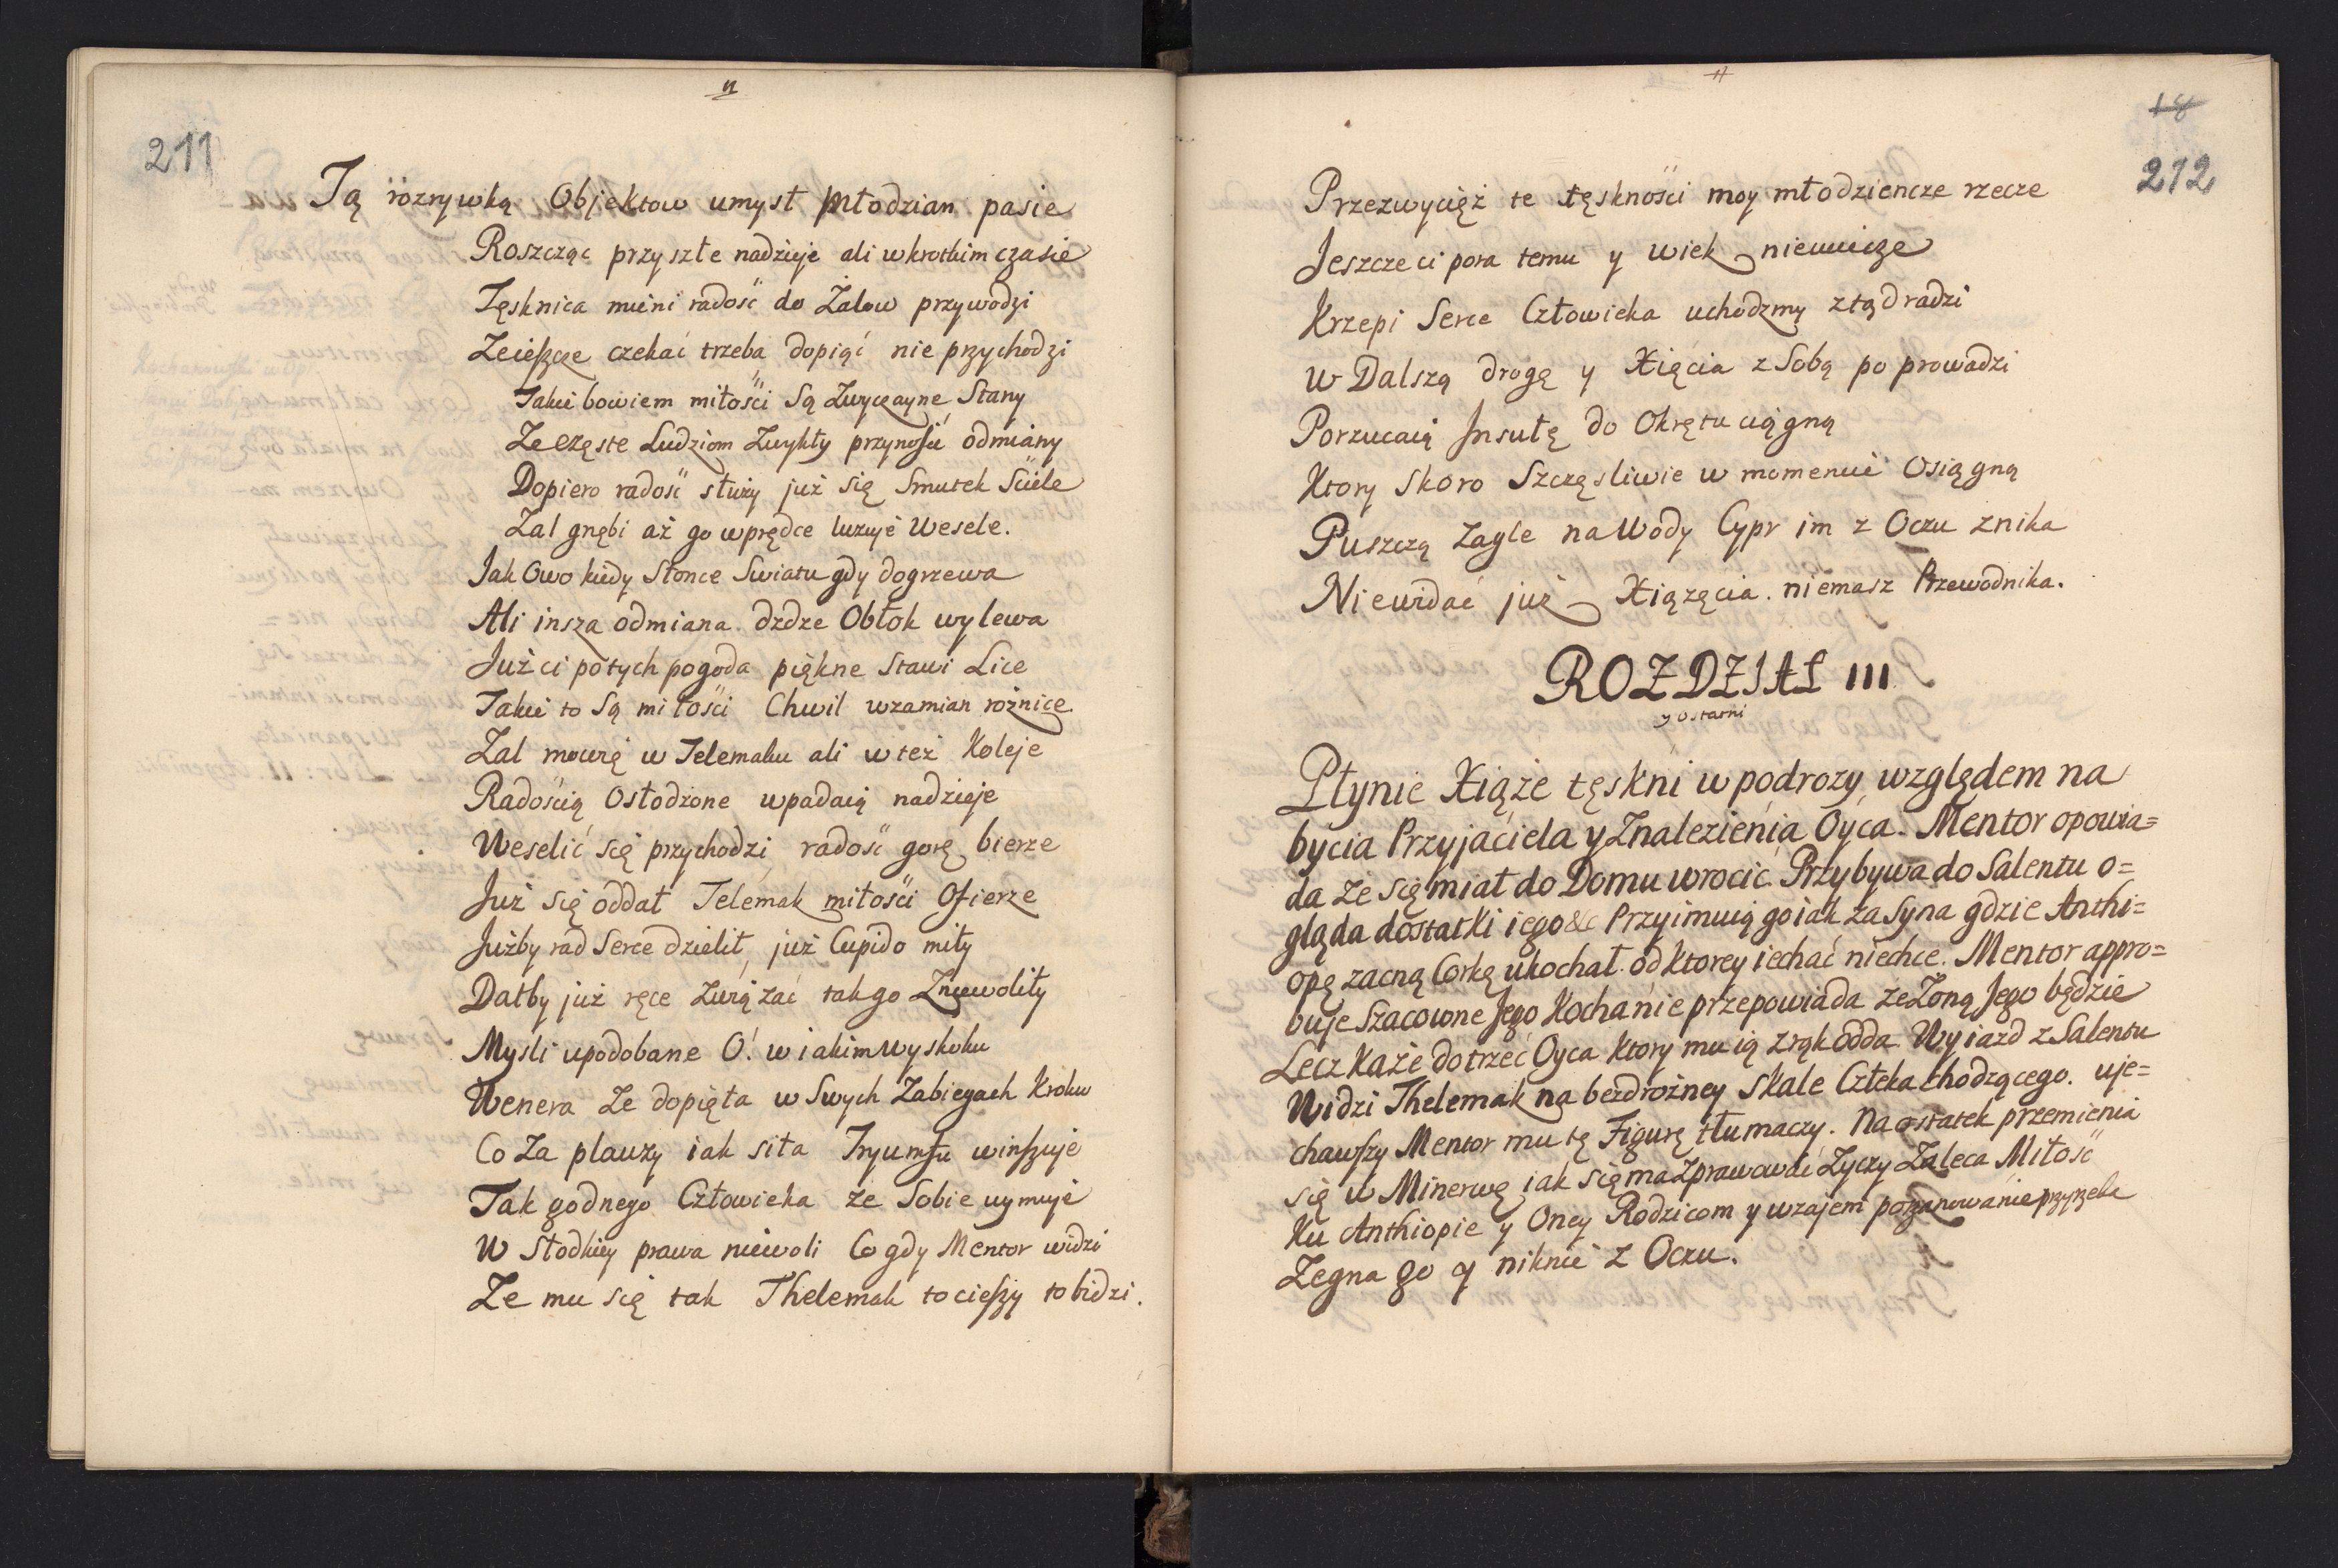 211
Tą rozrywką Objektow umysł młodzian pasie
Roszcząc przyszłe nadzieje ali wkrotkim czasie
Tęsknica mieni radość do Zalow przywodzi
Ze ieszcze czekać trzeba dopiąć nie przychodzi
Takie bowiem miłości Są Zwyczayne Stany
Ze częste Ludziom Zwykły przynosić odmiany
Dopiero radość służy już się Smutek Ściele
Zal gnębi aż go wprędce luzuje Wesele.
Jak Owo kiedy Słonce Swiatu gdy dogrzewa
Ali insza odmiana dzdze Obłok wylewa
Już ci potych pogoda piękne Stawi Lice
Takie to Są miłości Chwil wzamian rożnice
Zal mowię w Telemaku ali w też Koleje
Radością Osłodzone wpadaią nadzieje
Weselić się przychodzi radość gorę bierze
Już się oddał Telemak miłości Ofierze
Jużby rad Serce dzielił, już Cupido miły
Dałby już ręce związać tak go Zniewoliły
Mysli upodobane O! w iakim wyskoku
Wenera Ze dopięta w Swych Zabiegach Kroku
Co Za plauzy iak siła Tryumfu winszuje
Tak godnego Człowieka ze Sobie uymuje
W Słodkiey prawa niewoli Co gdy Mentor widzi
Ze mu się tak Thelemak to cieszy to bidzi.
18
212
Przezwycięż te tęskności moy młodziencze rzecze
Jeszcze ci pora temu y wiek nieuciecze
Krzepi Serce Człowieka uchodzmy ztąd radzi
W Dalszą drogę y Xięcia z Sobą po prowadzi
Porzucaią Insułę do Okrętu ciągną
Ktory Skoro Szczęsliwie w momencie Osiągną
Puszczą Zagle na Wody Cypr im z Oczu znika
Niewidać już Xiązęcia niemasz Przewodnika.
ROZDZIAŁ III
y ostatni
Płynie Xiąże tęskni w podrozy względem na
bycia Przyjaciela y Znalezienia Oyca. Mentor opowia=
da ze się miał do Domu wrocić. Przybywa do Salentu o=
gląda dostatki iego &c Przyimuią go iak za Syna gdzie Anthi=
opę zacną Corkę ukochał. od ktorey iechać niechce. Mentor appro=
buje Szacowne Jego Kochanie przepowiada ze Żoną Jego będzie
Lecz Każe dotrzeć Oyca ktory mu ią z rąk odda. Wyiazd z Salentu
Widzi Thelemak na bezdrożney Skale Człeka chodzącego. uje=
chawszy Mentor mu tę Figurę tłumaczy. Na ostatek przemienia
się w Minerwę iak się ma Zprawować Zyczy Zaleca Miłość
Ku Anthiopie y Oney Rodzicom y wzajem poszanowanie przyrzeka
Zegna go y niknie z Oczu.